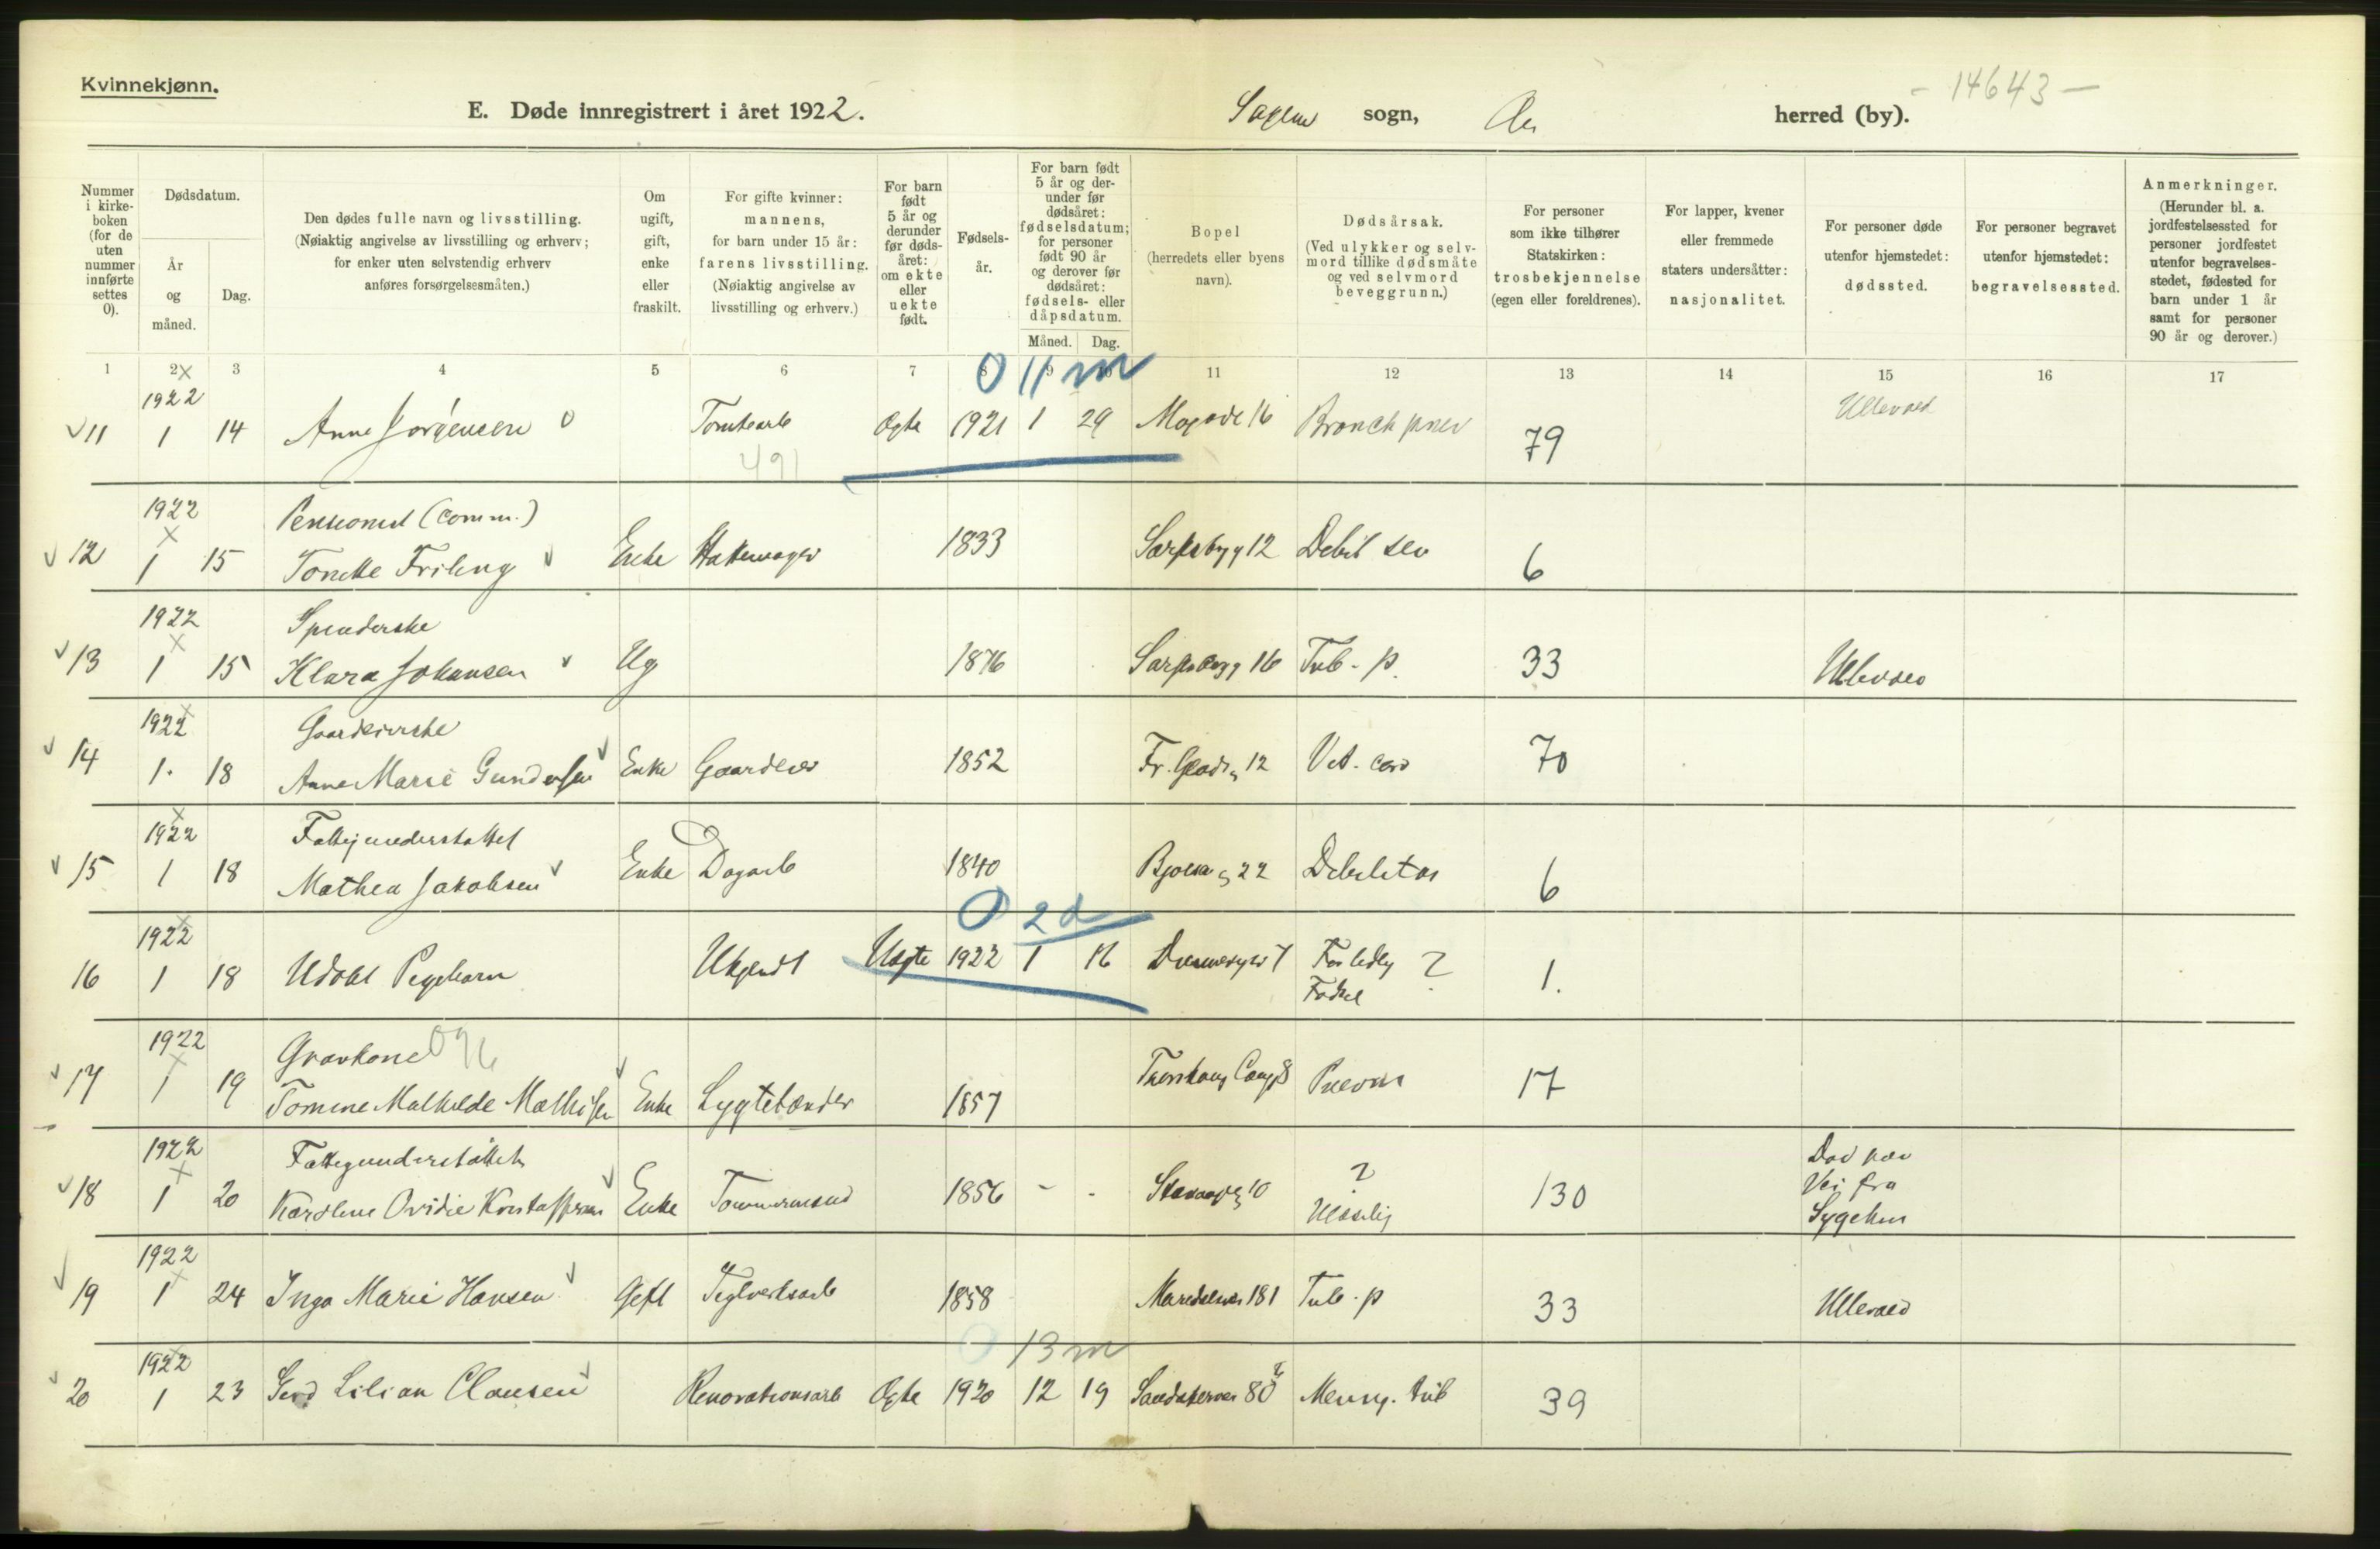 Kvinnekjønn.
E. Døde innregistrert i året 1922. sogn, herred (by).
- 14643 -
Nummer i kirkeboken (for de uten nummer innførte settes 0).
Dødsdatum.
År og måned.
Dag.
Den dødes fulle navn og livsstilling.
(Nøiaktig angivelse av livsstilling og erhverv;
for enker uten selvstendig erhverv
anføres forsørgelsesmåten.)
Om ugift, gift, enke eller fraskilt.
For gifte kvinner: mannens, for barn under 15 år: farens livsstilling. (Nøiaktig angivelse av livsstilling og erhverv.)
For barn født 5 år og derunder før dødsåret: om ekte eller uekte født.
Fødselsår.
For barn født 5 år og derunder før dødsåret: fødselsdatum; for personer født 90 år og derover før dødsåret: fødsels- eller dåpsdatum.
Måned. Dag.
Bopel
(herredets eller byens navn).
Dødsårsak.
(Ved ulykker og selvmord tillike dødsmåte og ved selvmord beveggrunn.)
For personer som ikke tilhører Statskirken: trosbekjennelse (egen eller foreldrenes).
For lapper, kvener eller fremmede staters undersåtter: nasjonalitet.
For personer døde utenfor hjemstedet: dødssted.
For personer begravet utenfor hjemstedet: begravelsessted.
Anmerkninger.
(Herunder bl. a. jordfestelsessted for personer jordfestet utenfor begravelsesstedet, fødested for barn under 1 år samt for personer 90 år og derover.)
1 2 3 4 5 6 7 8 9 10 11 12 13 14 15 16 17
0 11 m
1922
11 1 14 Anne Jørgensen Tomtearb Ogte 1921 1 29 16 Bronch pnev 79 Ullevaal
491
1922 Pensionist (comm.)
12 1 15 Enke 1833 12 Debil sen 6
1922 Spinderske
13 1 15 Klara Johansen Ug 1876 16 Tub. p. 33 Ullevaal
1922
14 1. 18 Anne Marie Gundersen Enke Gaardeier 1852 12 Vit. cord 70
1922 Fattigunderstøttet
15 1 18 Mathea Jakobsen Enke Dagarb 1840 22 Debilitas 6
0 2 d
1922
16 1 18 Udøbt Pigebarn Ukjendt Uægte 1922 1 16 ? 1.
Fødsel
1922 Gravkone
17 1 19 Tomine Mathilde Mathisen Enke Lygtetænder 1857 8 17
1922 Fattigunderstøttet
18 1 20 Enke Tømmermand 1856 - - 10 ? 130 Død paa
Vei fra
Sygehus
1922
19 1 24 Inga Marie Hansen Gift Teglverksarb 1858 181 Tub. p 33 Ullevaal
13 m
1922
20 1 23 Gerd Lilian Clausen Renovationsarb Ogte 1920 12 19 80 Mening. tub 39